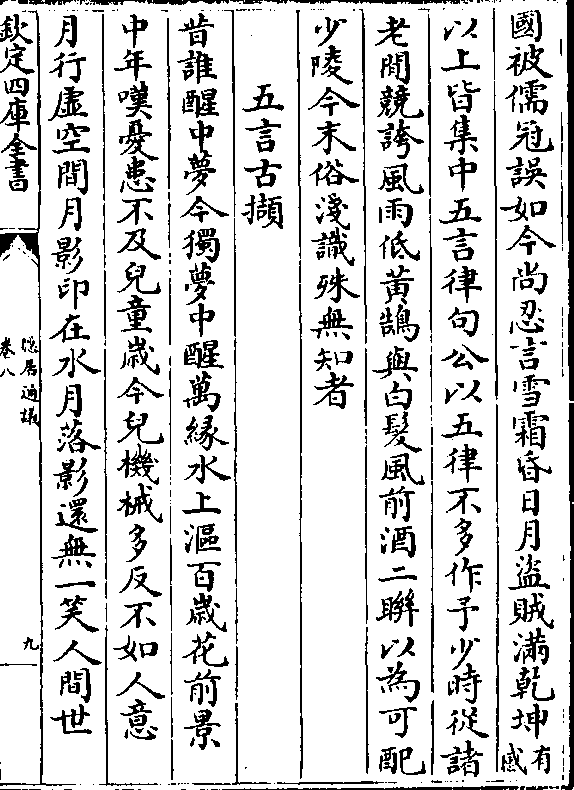 國被儒冠誤如今尚忍言雪霜昏日月盜賊滿乾坤有感
以上皆集中五言律句公以五律不多作予少時從諸
老閒競誇風雨低黃鵠與白髮風前酒二聨以為可配
少陵今末俗淺識殊無知者
五言古擷
昔誰醒中夢今獨夢中醒萬緣水上漚百歲花前景
中年嘆憂患不及兒童歲今兒機械多反不如人意
月行虛空間月影印在水月落影還無一笑人間世
欽定四庫全書
隱居通議
卷八
九